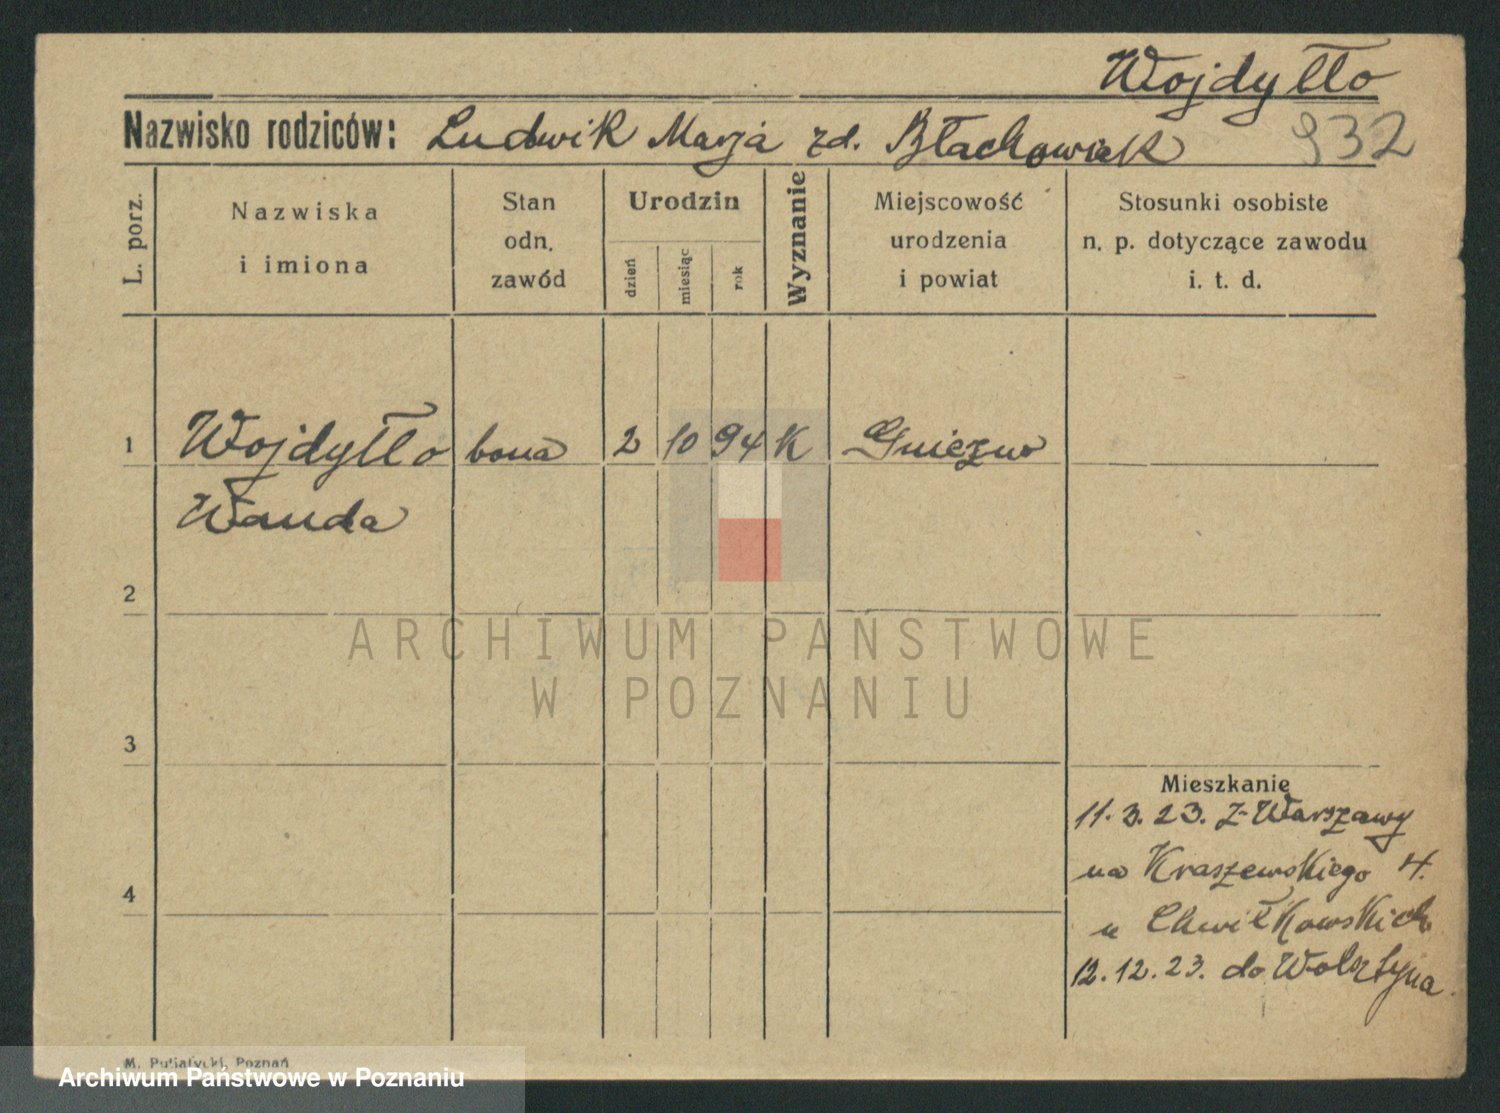 Wojdyłło
Nazwisko rodziców: Ludwik Marja zd. Błachowiak 932
L. porz.
Nazwiska
i imiona
Stan
odn.
zawód
Urodzin
dzień
miesiąc
rok
Wyznanie
Miejscowość
urodzenia
i powiat
Stosunki osobiste
n. p. dotyczące zawodu
i. t. d.
1 Wojdyłło bona 2 10 94 K Gniezno
Wanda
2
3
Mieszkanie
11.3.23. z Warszawy
na Kraszewskiego 4.
4
u Chwiłkowskich
12.12.23. do Wolsztyna
M. Putiatycki, Poznań
ARCHIWUM PAŃSTWOWE
W POZNANIU
Archiwum Państwowe w Poznaniu